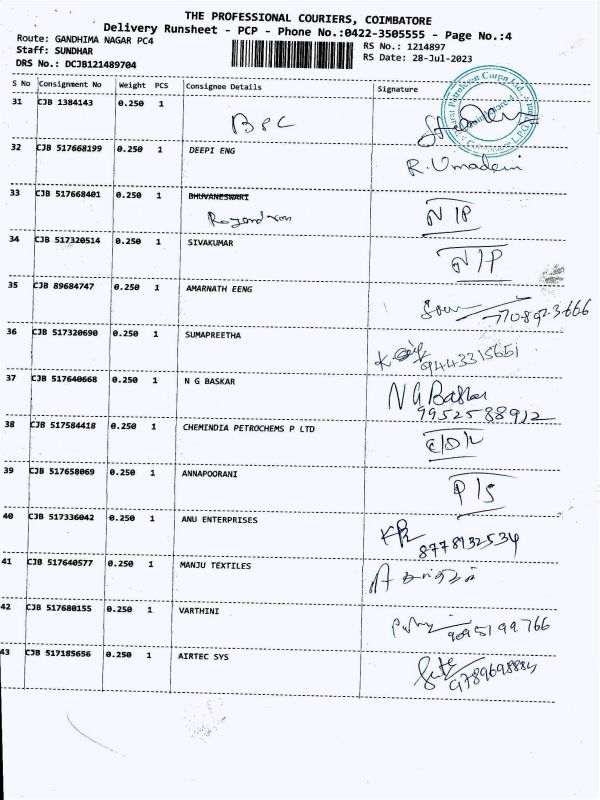 THE PROFESSIONAL COURIERS, COIMBATORE
Delivery Runsheet - PCP - Phone No.:0422-3505555 - Page No.:4
Route: GANDHIMA NAGAR PC4
RS No.: 1214897
Staff: SUNDHAR
RS Date: 28-Jul-2023
DRS No.: DCJB121489704
S No Consignment No Weight PCS Consignee Details Signature
31 CJB 1384143 0.250 1 BPC
32 CJB 517668199 0.250 1 DEEPI ENG R. Umadevi
33 CJB 517668401 0.250 1 BHUVANESWARI N/P
34 CJB 517320514 0.250 1 SIVAKUMAR N/P
35 CJB 89684747 0.250 1 AMARNATH EENG
36 CJB 517320690 0.250 1 SUMAPREETHA
9443315651
37 CJB 517640668 0.250 1 N G BASKAR N G Baskar
9952588912
38 CJB 517584418 0.250 1 CHEMINDIA PETROCHEMS P LTD
39 CJB 517658069 0.250 1 ANNAPOORANI P/S
40 CJB 517336042 0.250 1 ANU ENTERPRISES
8778132534
41 CJB 517640577 0.250 1 MANJU TEXTILES
42 CJB 517680155 0.250 1 VARTHINI
9095199766
43 CJB 517185656 0.250 1 AIRTEC SYS
9789698884